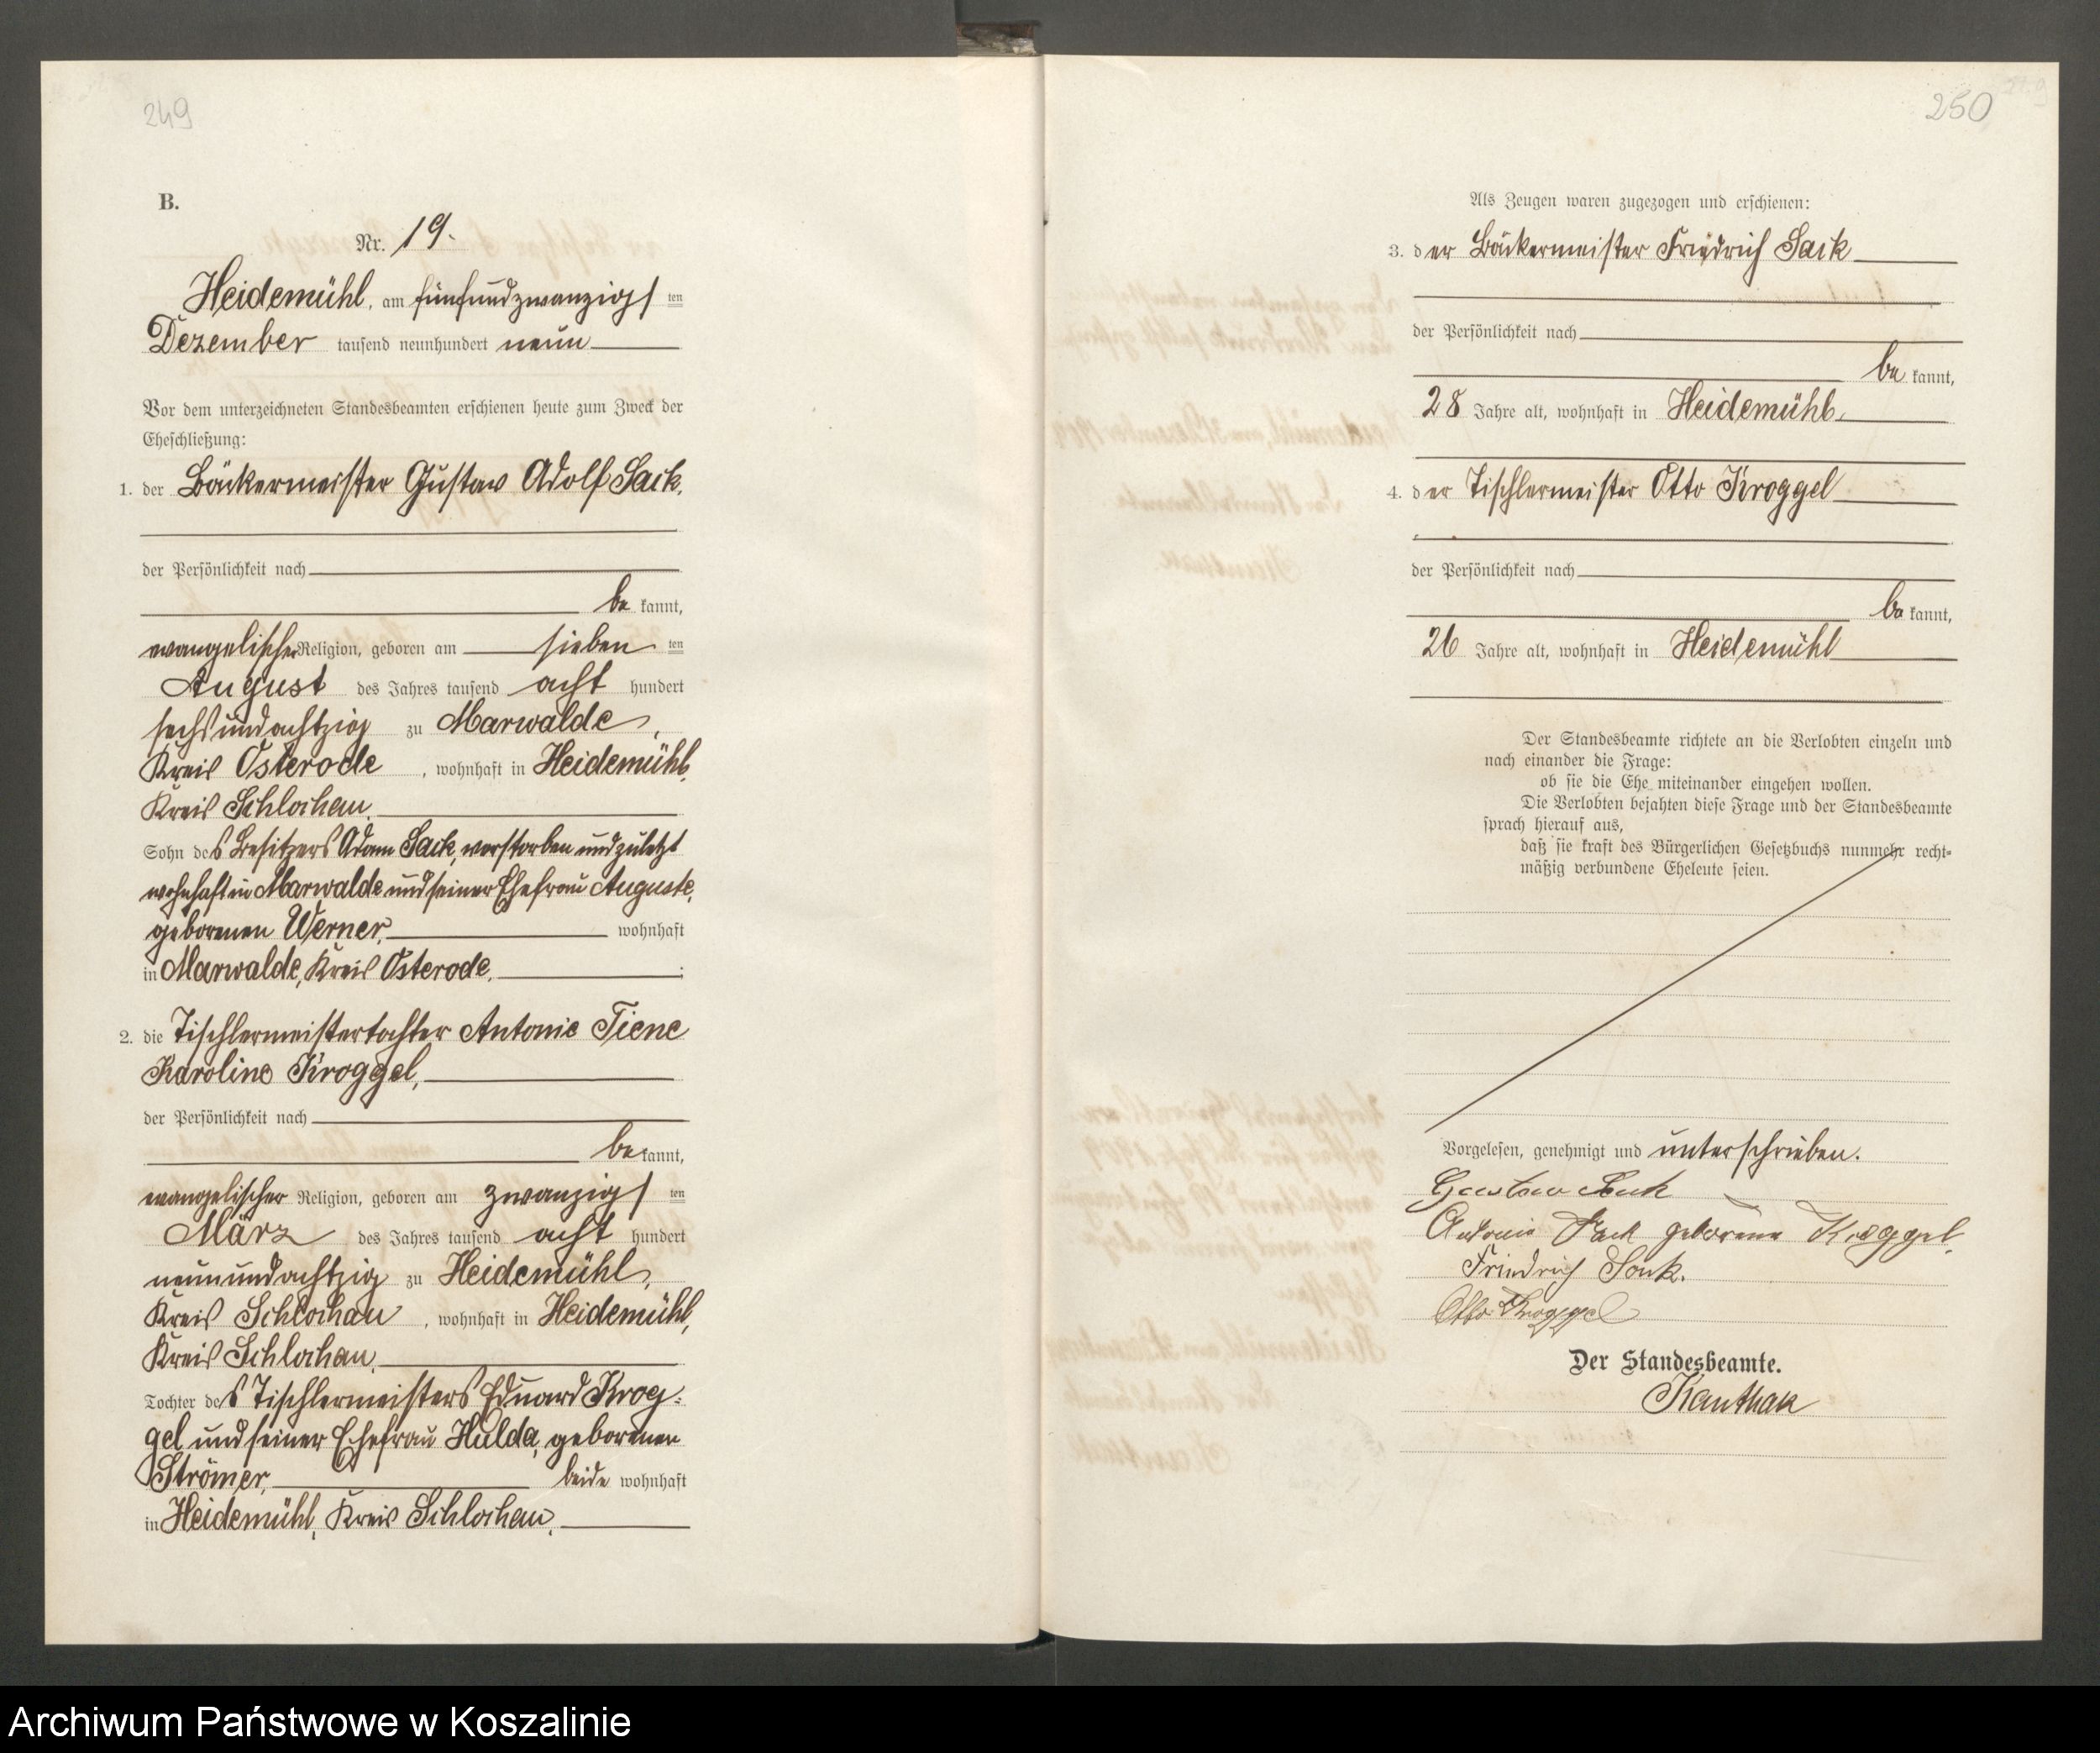 249
B.
Nr. 19.
Heidemühl, am fünfundzwanzigsten
Dezember tausend neunhundert neun
Vor dem unterzeichneten Standesbeamten erschienen heute zum Zweck der
Eheschließung:
1. der Bäckermeister Gustav Adolf Sack,
der Persönlichkeit nach
bekannt,
evangelischer Religion, geboren am siebenten
August des Jahres tausend achthundert
sechsundachtzig zu Marwalde,
Kreis Osterode, wohnhaft in Heidemühl,
Kreis Schlochau,
Sohn des Besitzers Adam Sack, verstorben und zuletzt
wohnhaft in Marwalde und seiner Ehefrau Auguste,
geborenen Werner, wohnhaft
in Marwalde, Kreis Osterode.
2. die Tischlermeistertochter Antonie Tiene
Karoline Kroggel,
der Persönlichkeit nach
bekannt,
evangelischer Religion, geboren am zwanzigsten
März des Jahres tausend achthundert
neunundachtzig zu Heidemühl,
Kreis Schlochau, wohnhaft in Heidemühl,
Kreis Schlochau,
Tochter des Tischlermeisters Eduard Krog=
gel und seiner Ehefrau Hulda, geborenen
Strömer, beide wohnhaft
in Heidemühl, Kreis Schlochau.
250
Als Zeugen waren zugezogen und erschienen:
3. der Bäckermeister Friedrich Sack
der Persönlichkeit nach
bekannt,
28 Jahre alt, wohnhaft in Heidemühl,
4. der Tischlermeister Otto Kroggel
der Persönlichkeit nach
bekannt,
26 Jahre alt, wohnhaft in Heidemühl
Der Standesbeamte richtete an die Verlobten einzeln und
nach einander die Frage:
ob sie die Ehe miteinander eingehen wollen.
Die Verlobten bejahten diese Frage und der Standesbeamte
sprach hierauf aus,
daß sie kraft des Bürgerlichen Gesetzbuchs nunmehr recht=
mäßig verbundene Eheleute seien.
Vorgelesen, genehmigt und unterschrieben.
Gustav Sack
Antonie Sack geborene Kroggel.
Friedrich Sack.
Otto Kroggel
Der Standesbeamte.
Kanthak
Archiwum Państwowe w Koszalinie